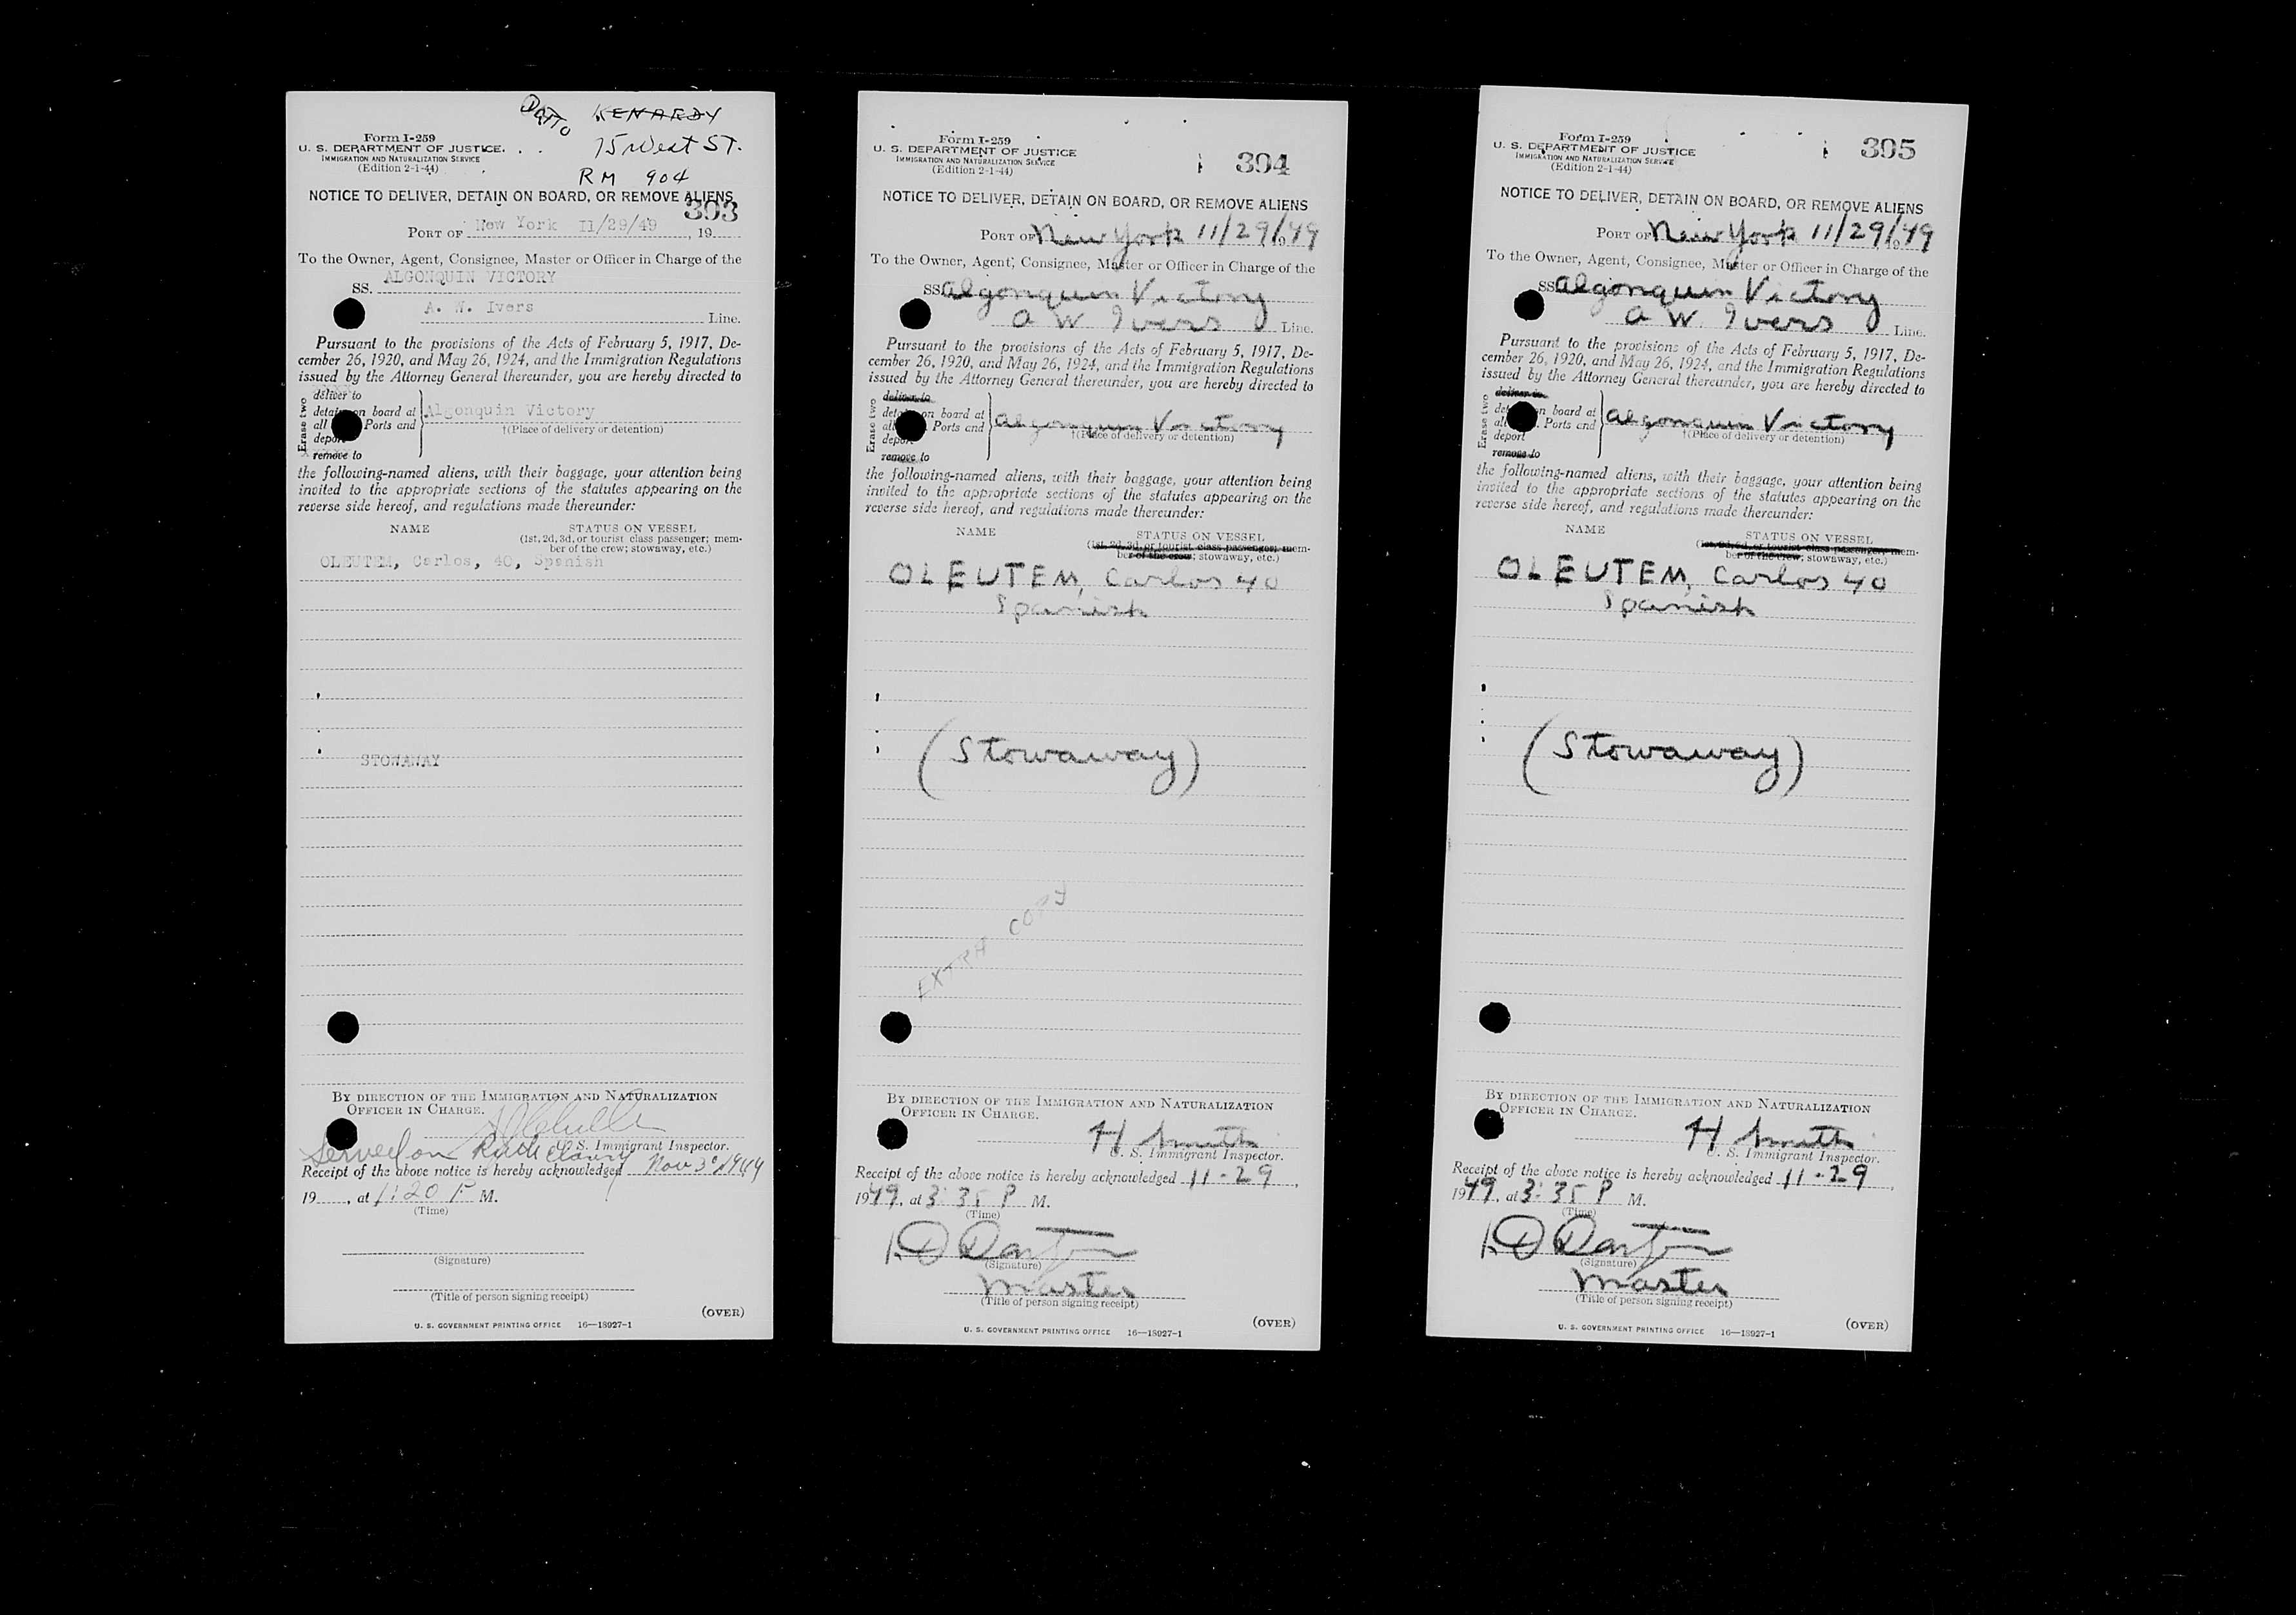 Ditto KENAREDY
75 West ST.
RM 904
Form I-259
U. S. DEPARTMENT OF JUSTICE
IMMIGRATION AND NATURALIZATION SERVICE
(Edition 2-1-44)
NOTICE TO DELIVER, DETAIN ON BOARD, OR REMOVE ALIENS
393
PORT OF New York 11/29/49, 19
To the Owner, Agent, Consignee, Master or Officer in Charge of the
SS. ALGONQUIN VICTORY
A. W. Ivers Line.
Pursuant to the provisions of the Acts of February 5, 1917, De-
cember 26, 1920, and May 26, 1924, and the Immigration Regulations
issued by the Attorney General thereunder, you are hereby directed to
Erase two
deliver to
detain on board at
all Ports and
deport
remove to
Algonquin Victory
†(Place of delivery or detention)
the following-named aliens, with their baggage, your attention being
invited to the appropriate sections of the statutes appearing on the
reverse side hereof, and regulations made thereunder:
NAME STATUS ON VESSEL
(1st, 2d, 3d, or tourist class passenger; mem-
ber of the crew; stowaway, etc.)
OLEUTEM, Carlos, 40, Spanish
STOWAWAY
BY DIRECTION OF THE IMMIGRATION AND NATURALIZATION
OFFICER IN CHARGE.
U. S. Immigrant Inspector.
Served on
Receipt of the above notice is hereby acknowledged Nov 30
19, at 1:20 P M.
(Time)
(Signature)
(Title of person signing receipt)
(OVER)
U. S. GOVERNMENT PRINTING OFFICE 16—18927-1
Form I-259
U. S. DEPARTMENT OF JUSTICE
IMMIGRATION AND NATURALIZATION SERVICE
(Edition 2-1-44)
394
NOTICE TO DELIVER, DETAIN ON BOARD, OR REMOVE ALIENS
PORT OF New York 11/29/49
To the Owner, Agent, Consignee, Master or Officer in Charge of the
SS Algonquin Victory
A W Ivers Line.
Pursuant to the provisions of the Acts of February 5, 1917, De-
cember 26, 1920, and May 26, 1924, and the Immigration Regulations
issued by the Attorney General thereunder, you are hereby directed to
Erase two
deliver to
detain on board at
all Ports and
deport
remove to
Algonquin Victory
†(Place of delivery or detention)
the following-named aliens, with their baggage, your attention being
invited to the appropriate sections of the statutes appearing on the
reverse side hereof, and regulations made thereunder:
NAME STATUS ON VESSEL
(1st, 2d, 3d, or tourist class passenger; mem-
ber of the crew; stowaway, etc.)
OLEUTEM, Carlos 40
Spanish
(Stowaway)
EXTRA COPY
BY DIRECTION OF THE IMMIGRATION AND NATURALIZATION
OFFICER IN CHARGE.
H Smith
U. S. Immigrant Inspector.
Receipt of the above notice is hereby acknowledged 11-29,
1949, at 3:35 P M.
(Time)
(Signature)
Master
(Title of person signing receipt)
(OVER)
U. S. GOVERNMENT PRINTING OFFICE 16—18927-1
Form I-259
U. S. DEPARTMENT OF JUSTICE
IMMIGRATION AND NATURALIZATION SERVICE
(Edition 2-1-44)
395
NOTICE TO DELIVER, DETAIN ON BOARD, OR REMOVE ALIENS
PORT OF New York 11/29/49
To the Owner, Agent, Consignee, Master or Officer in Charge of the
SS Algonquin Victory
A W. Ivers Line.
Pursuant to the provisions of the Acts of February 5, 1917, De-
cember 26, 1920, and May 26, 1924, and the Immigration Regulations
issued by the Attorney General thereunder, you are hereby directed to
Erase two
deliver to
detain on board at
all Ports and
deport
remove to
Algonquin Victory
†(Place of delivery or detention)
the following-named aliens, with their baggage, your attention being
invited to the appropriate sections of the statutes appearing on the
reverse side hereof, and regulations made thereunder:
NAME STATUS ON VESSEL
(1st, 2d, 3d, or tourist class passenger; mem-
ber of the crew; stowaway, etc.)
OLEUTEM, Carlos 40
Spanish
(Stowaway)
BY DIRECTION OF THE IMMIGRATION AND NATURALIZATION
OFFICER IN CHARGE.
H Smith
U. S. Immigrant Inspector.
Receipt of the above notice is hereby acknowledged 11-29,
1949, at 3:35 P M.
(Time)
(Signature)
Master
(Title of person signing receipt)
(OVER)
U. S. GOVERNMENT PRINTING OFFICE 16—18927-1